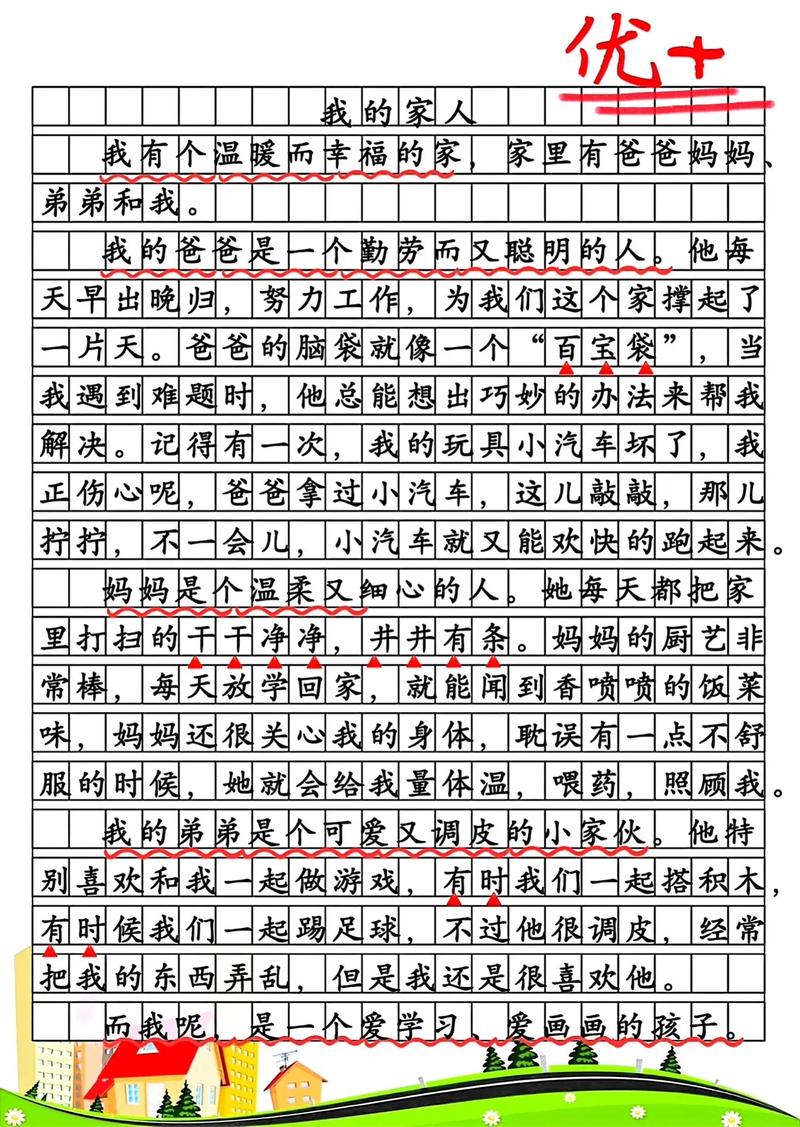 优+
我的家人
我有个温暖而幸福的家，家里有爸爸妈妈、
弟弟和我。
我的爸爸是一个勤劳而又聪明的人。他每
天早出晚归，努力工作，为我们这个家撑起了
一片天。爸爸的脑袋就像一个“百宝袋”，当
我遇到难题时，他总能想出巧妙的办法来帮我
解决。记得有一次，我的玩具小汽车坏了，我
正伤心呢，爸爸拿过小汽车，这儿敲敲，那儿
拧拧，不一会儿，小汽车就又能欢快的跑起来。
妈妈是个温柔又细心的人。她每天都把家
里打扫的干干净净，井井有条。妈妈的厨艺非
常棒，每天放学回家，就能闻到香喷喷的饭菜
味，妈妈还很关心我的身体，耽误有一点不舒
服的时候，她就会给我量体温，喂药，照顾我。
我的弟弟是个可爱又调皮的小家伙。他特
别喜欢和我一起做游戏，有时我们一起搭积木，
有时候我们一起踢足球，不过他很调皮，经常
把我的东西弄乱，但是我还是很喜欢他。
而我呢，是一个爱学习、爱画画的孩子。